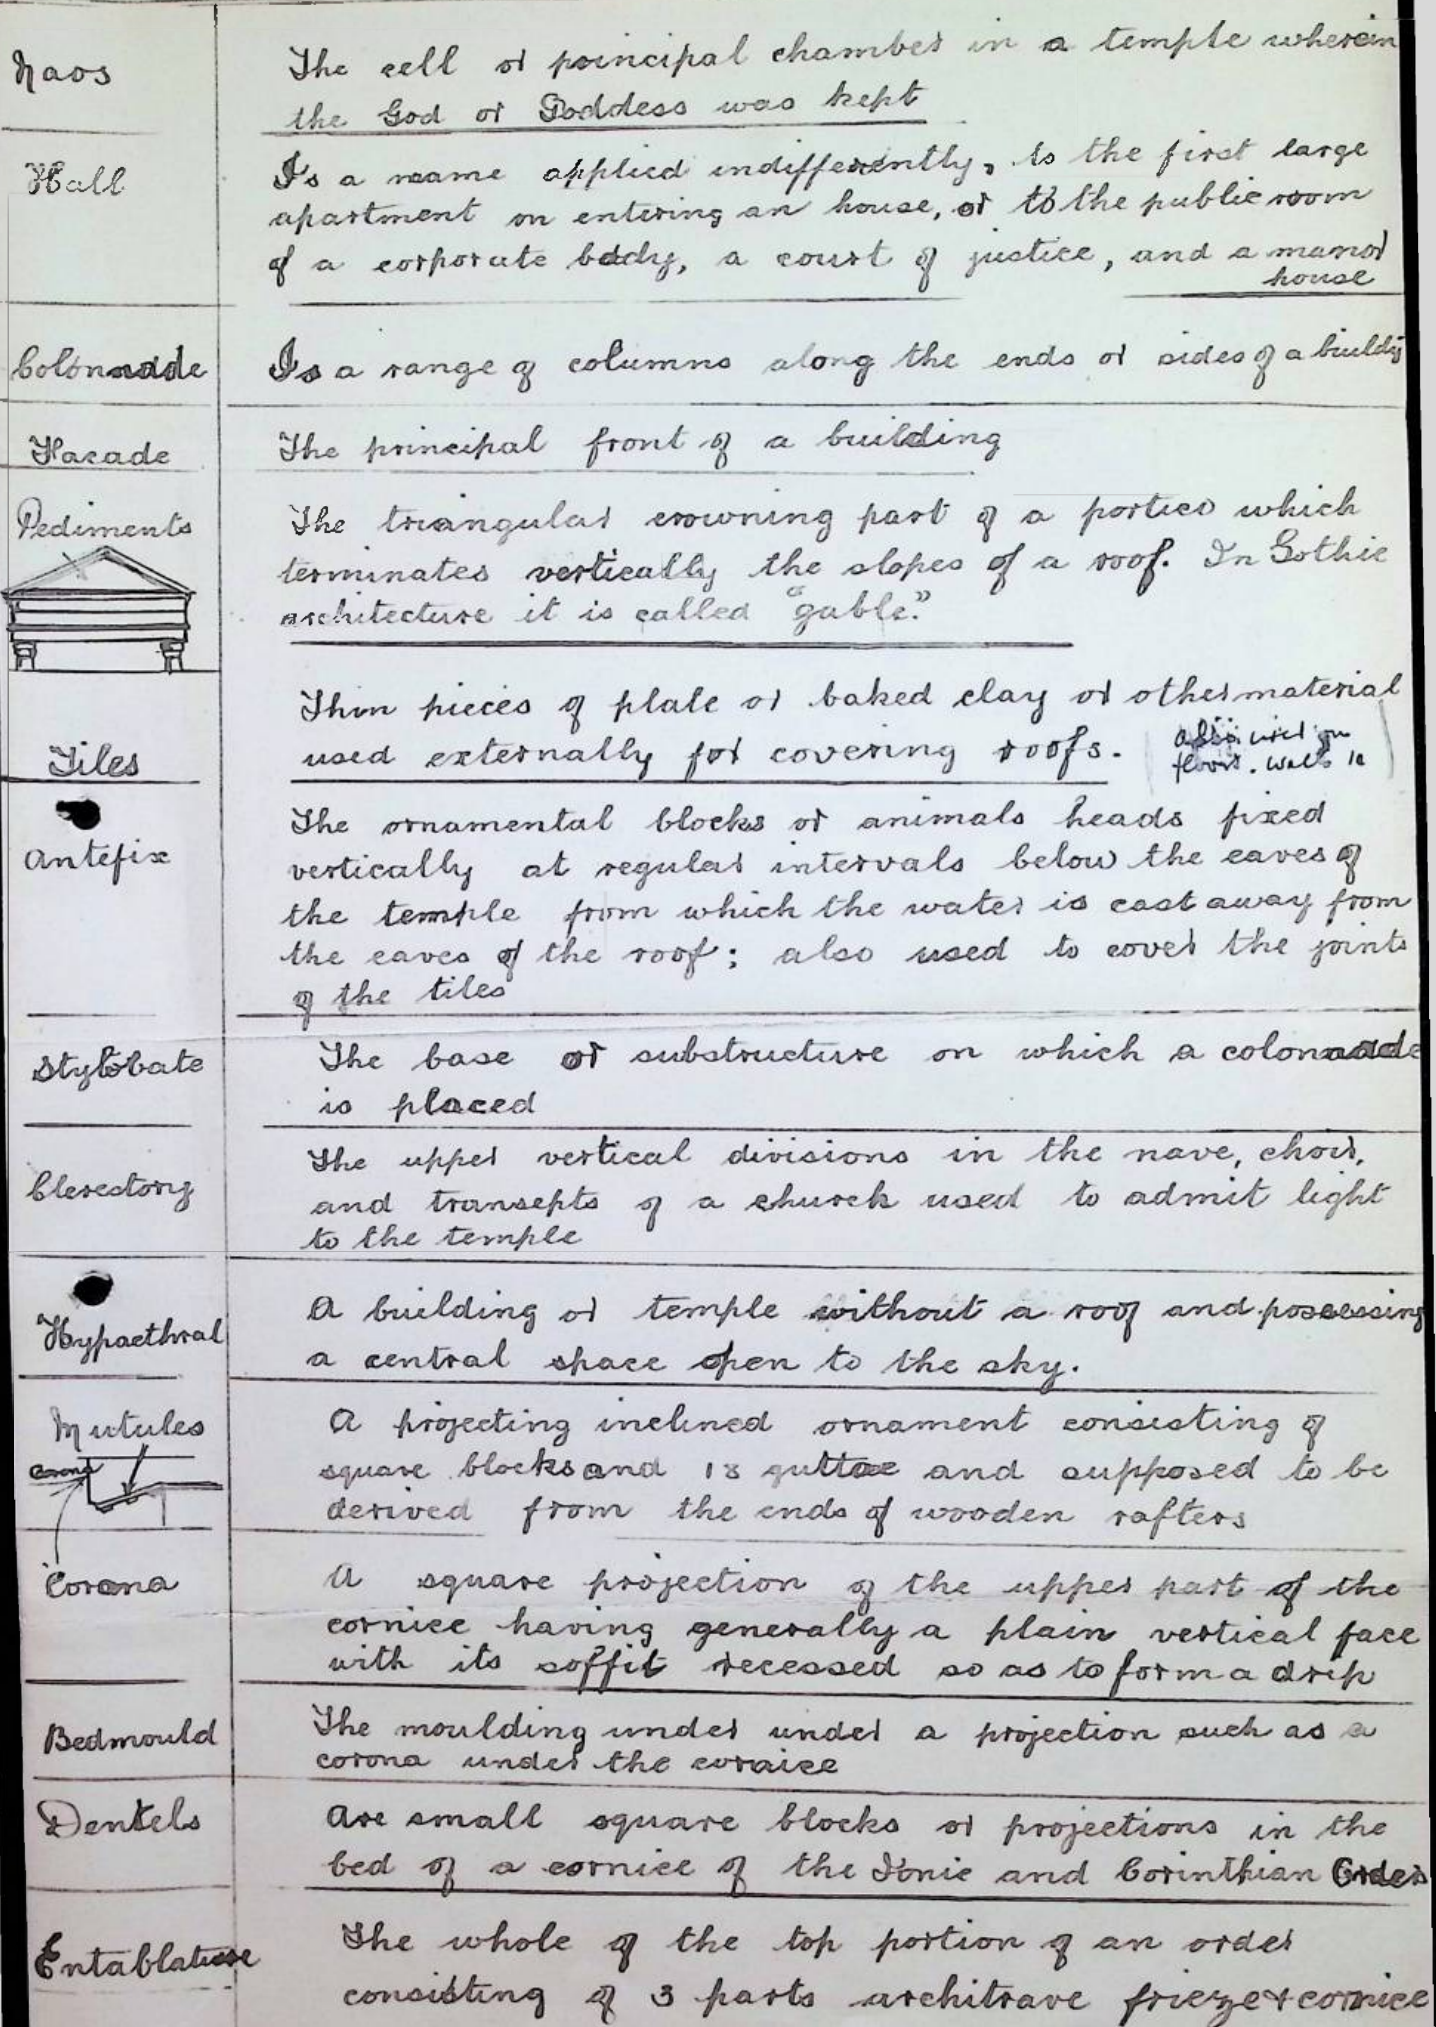 Naos
The cell or principal chamber in a temple wherein
the God or Goddess was kept
Hall
Is a name applied indifferently, to the first large
apartment on entering an house, or to the public room
of a corporate body, a court of justice, and a manor
house
Colonnade
Is a range of columns along the ends or sides of a buildg
Facade
The principal front of a building
Pediments
The triangular crowning part of a portico which
terminates vertically the slopes of a roof. In Gothic
architecture it is called "gable."
Tiles
Thin pieces of plate or baked clay or other material
used externally for covering roofs.
also used on
floors. walls
Antefix
The ornamental blocks or animals heads fixed
vertically at regular intervals below the eaves of
the temple from which the water is cast away from
the eaves of the roof; also used to cover the joints
of the tiles
Stylobate
The base or substructure on which a colonnade
is placed
Clerestory
The upper vertical divisions in the nave, choir,
and transepts of a church used to admit light
to the temple
Hypaethral
A building or temple without a roof and possessing
a central space open to the sky.
Mutules
Corona
A projecting inclined ornament consisting of
square blocks and 18 guttae and supposed to be
derived from the ends of wooden rafters
Corona
A square projection of the upper part of the
cornice having generally a plain vertical face
with its soffit recessed so as to form a drip
Bedmould
The moulding under under a projection such as a
corona under the cornice
Dentels
Are small square blocks or projections in the
bed of a cornice of the Ionic and Corinthian Orders
Entablature
The whole of the top portion of an order
consisting of 3 parts architrave frieze & cornice